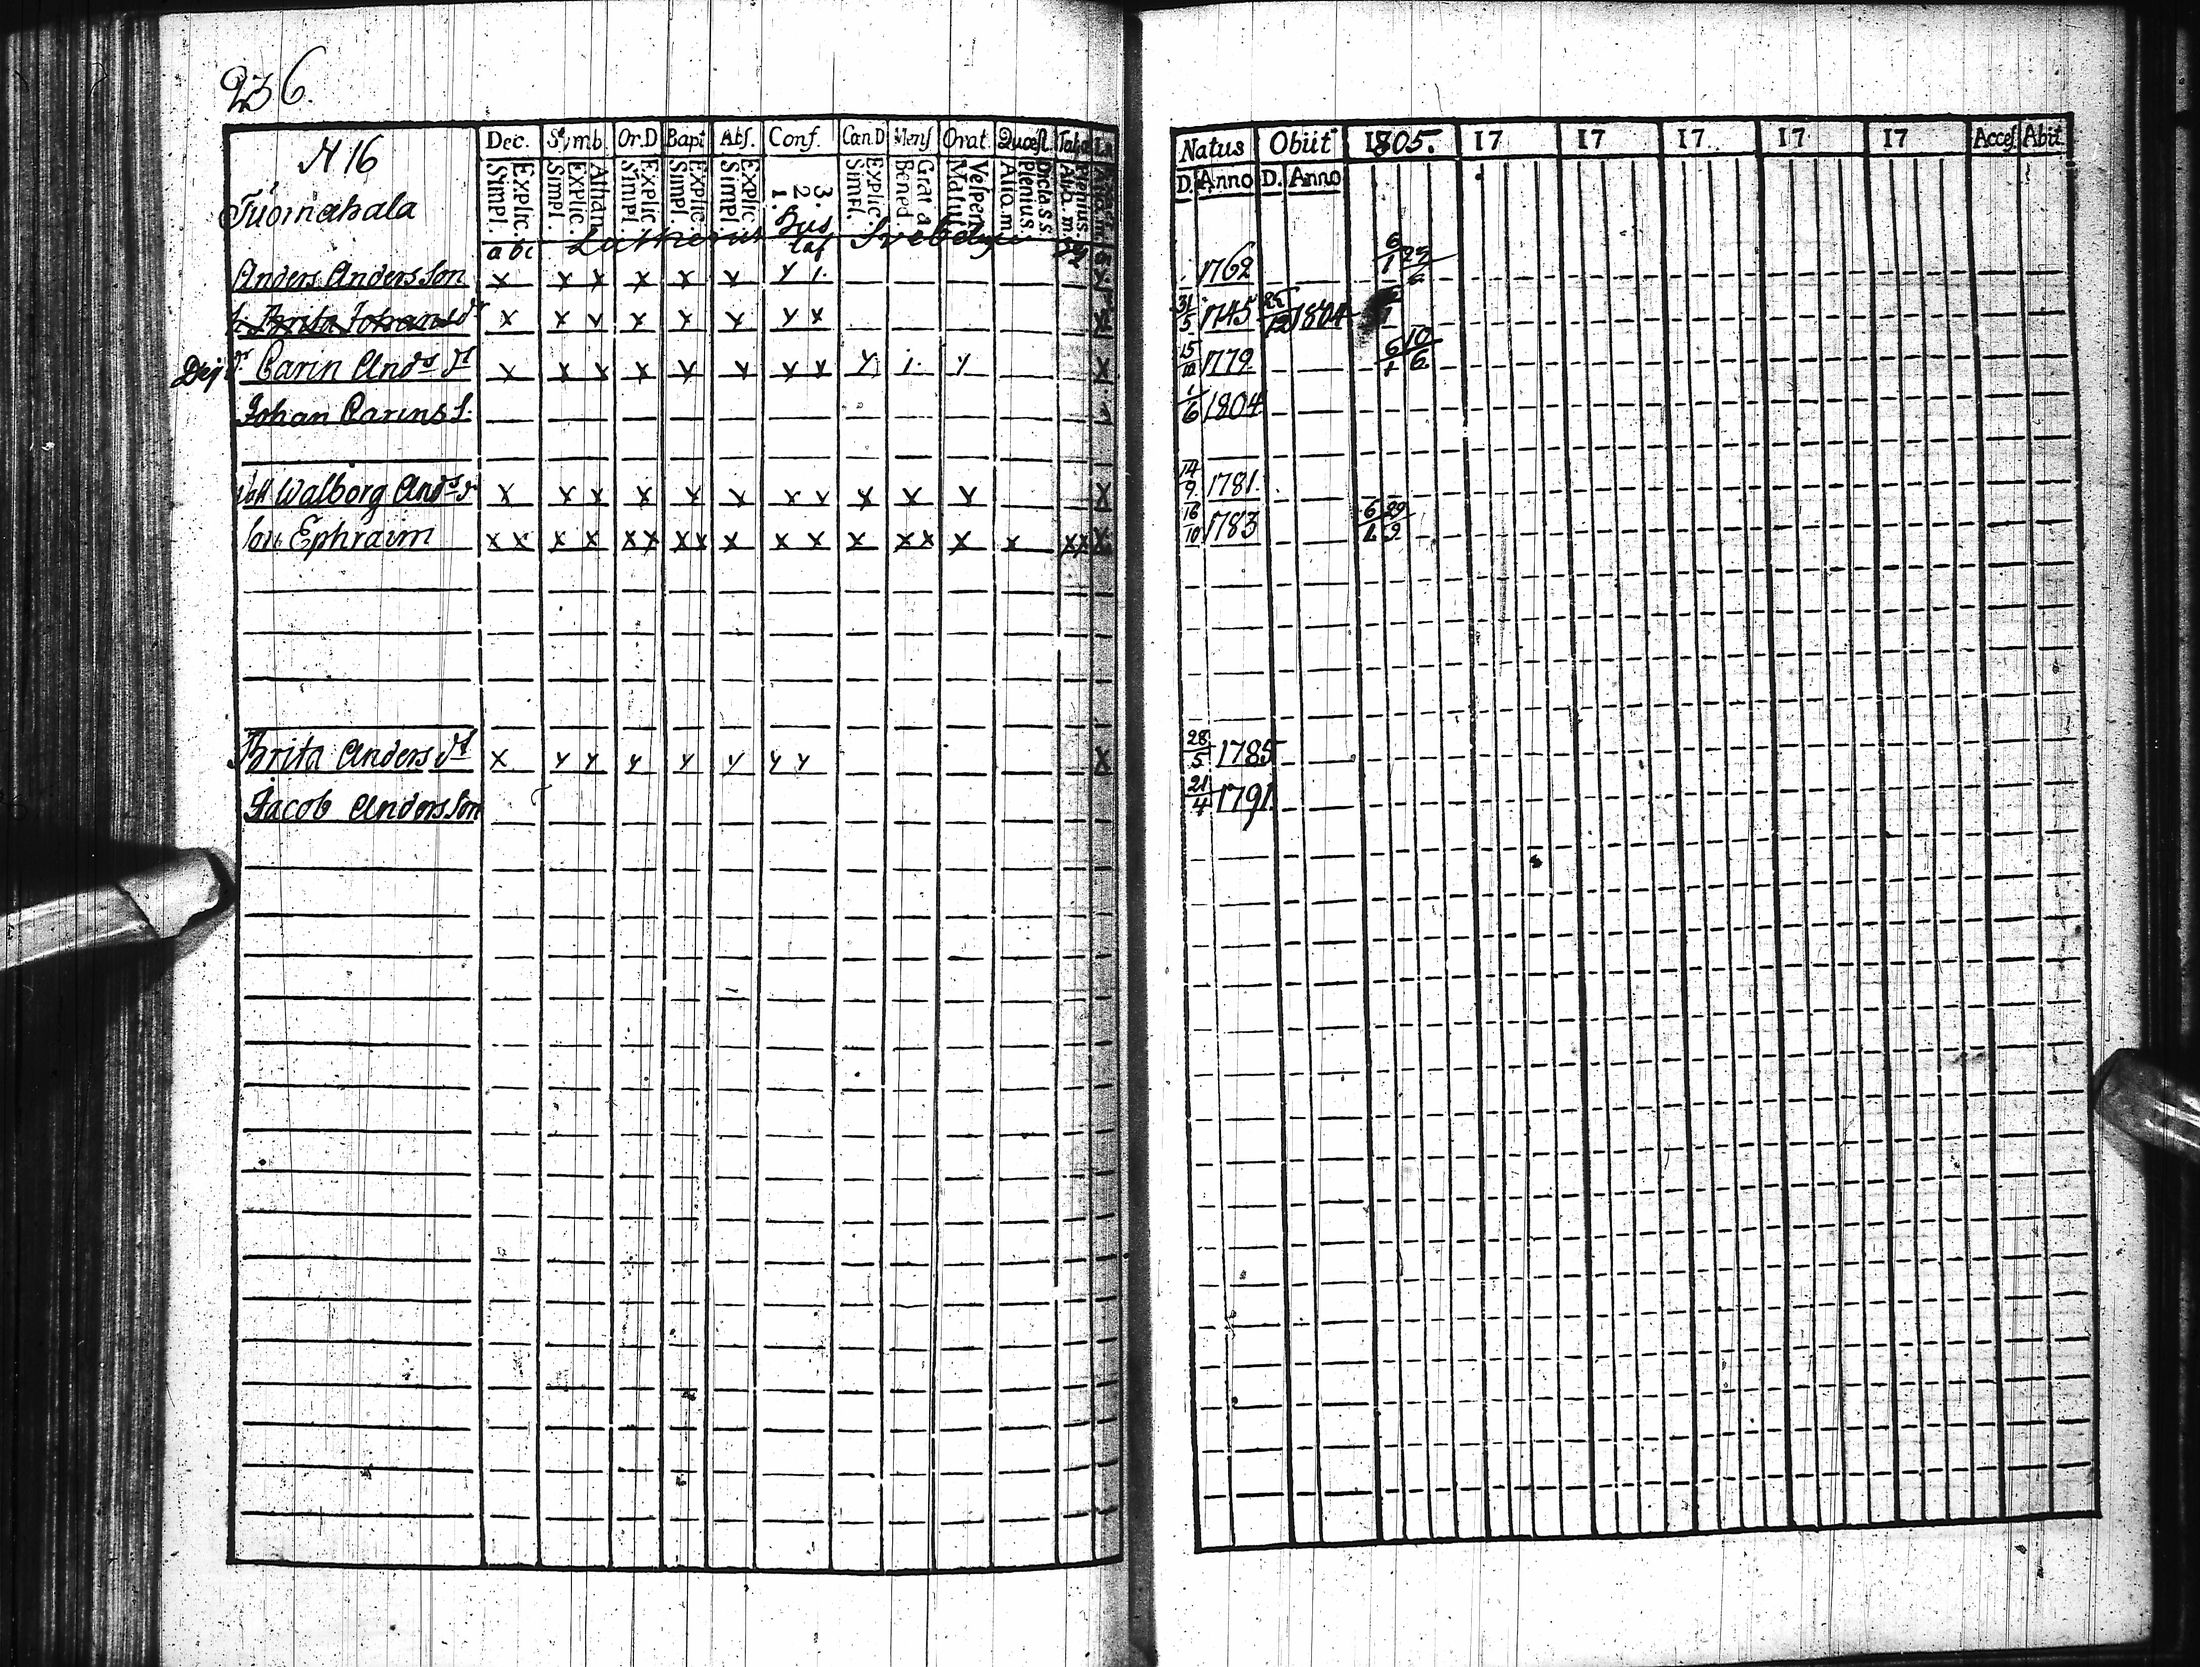 236.
N 16
Tuomahala
Dec. Symb. Or.D Bapt Abs. Conf. Can.D Mens Orat. Quæst. Tab.œ
Explic. Simpl. Athan. Explic. Simpl. Explic. Simpl. Explic. Simpl. Explic. Simpl. 3. 2. 1. Explic. Simpl. Grat a. Bened. Vespert. Matut. Dicta s.s. Plenius. Aliq. m. Plenius. Aliq. m.
abc Lutherus Hus taf Svebelius
Natus Obiit 1805. 17 17 17 17 17 Acces. Abit
D. Anno D. Anno
Anders Andersson x x x x x x y 1. x 1762 6/1 25/6
h. Brita Johans dr x x v x y y y x x 31/5 1745 25/12 1804
Dej dr Carin Ands dr x x x x x x x x y 1. y x 15/10 1779 6/1 10/6
Johan Carins S. 1/6 1804
Walborg Ands dr x x x x x x x v x x x x 14/9 1781.
Son Ephraim x x x x x x x x x x x x x x x x x x 16/10 1783 6/1 29/9
Brita Anders dr x y y y y y y y x 28/5 1785
Jacob Andersson 21/4 1791